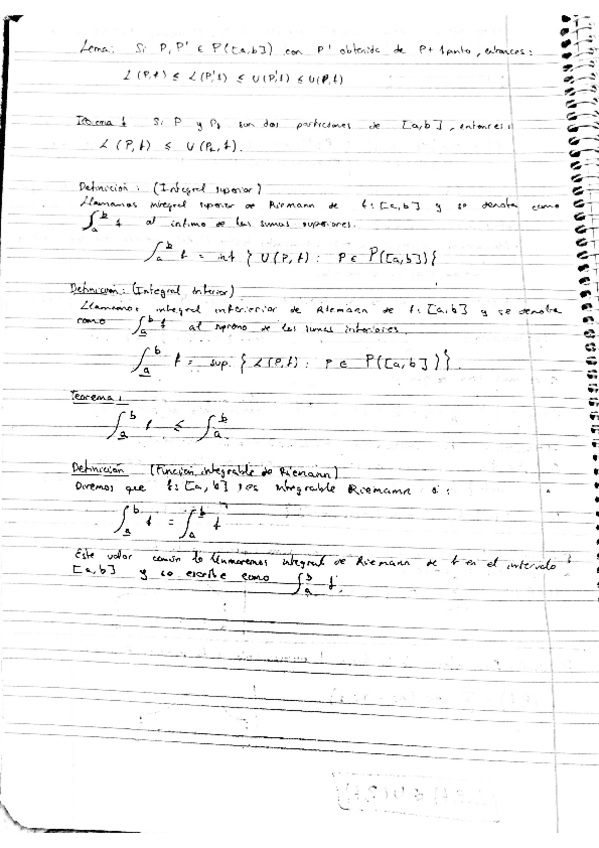 Lema: Si P, P' ∈ P([a,b]) con P' obtenida de P + 1 punto, entonces:
L(P,f) ≤ L(P',f) ≤ U(P',f) ≤ U(P,f)
Teorema 1 Si P y P₂ son dos particiones de [a,b], entonces:
L(P,f) ≤ U(P₂,f).
Definición: (Integral superior)
Llamamos integral superior de Riemann de f:[a,b] y se denota como
∫̅ₐᵇ f al ínfimo de las sumas superiores.
∫̅ₐᵇ f = inf { U(P,f) : P ∈ P([a,b]) }
Definición: (Integral Inferior)
Llamamos integral inferior de Riemann de f:[a,b] y se denota
como ∫̲ₐᵇ f al supremo de las sumas inferiores.
∫̲ₐᵇ f = sup. { L(P,f) : P ∈ P([a,b]) }.
Teorema:
∫̲ₐᵇ f ≤ ∫̅ₐᵇ
Definición (Función integrable de Riemann)
Diremos que f:[a,b], es integrable Riemann si:
∫̲ₐᵇ f = ∫̅ₐᵇ f
Este valor común lo llamaremos integral de Riemann de f en el intervalo
[a,b] y se escribe como ∫ₐᵇ f.